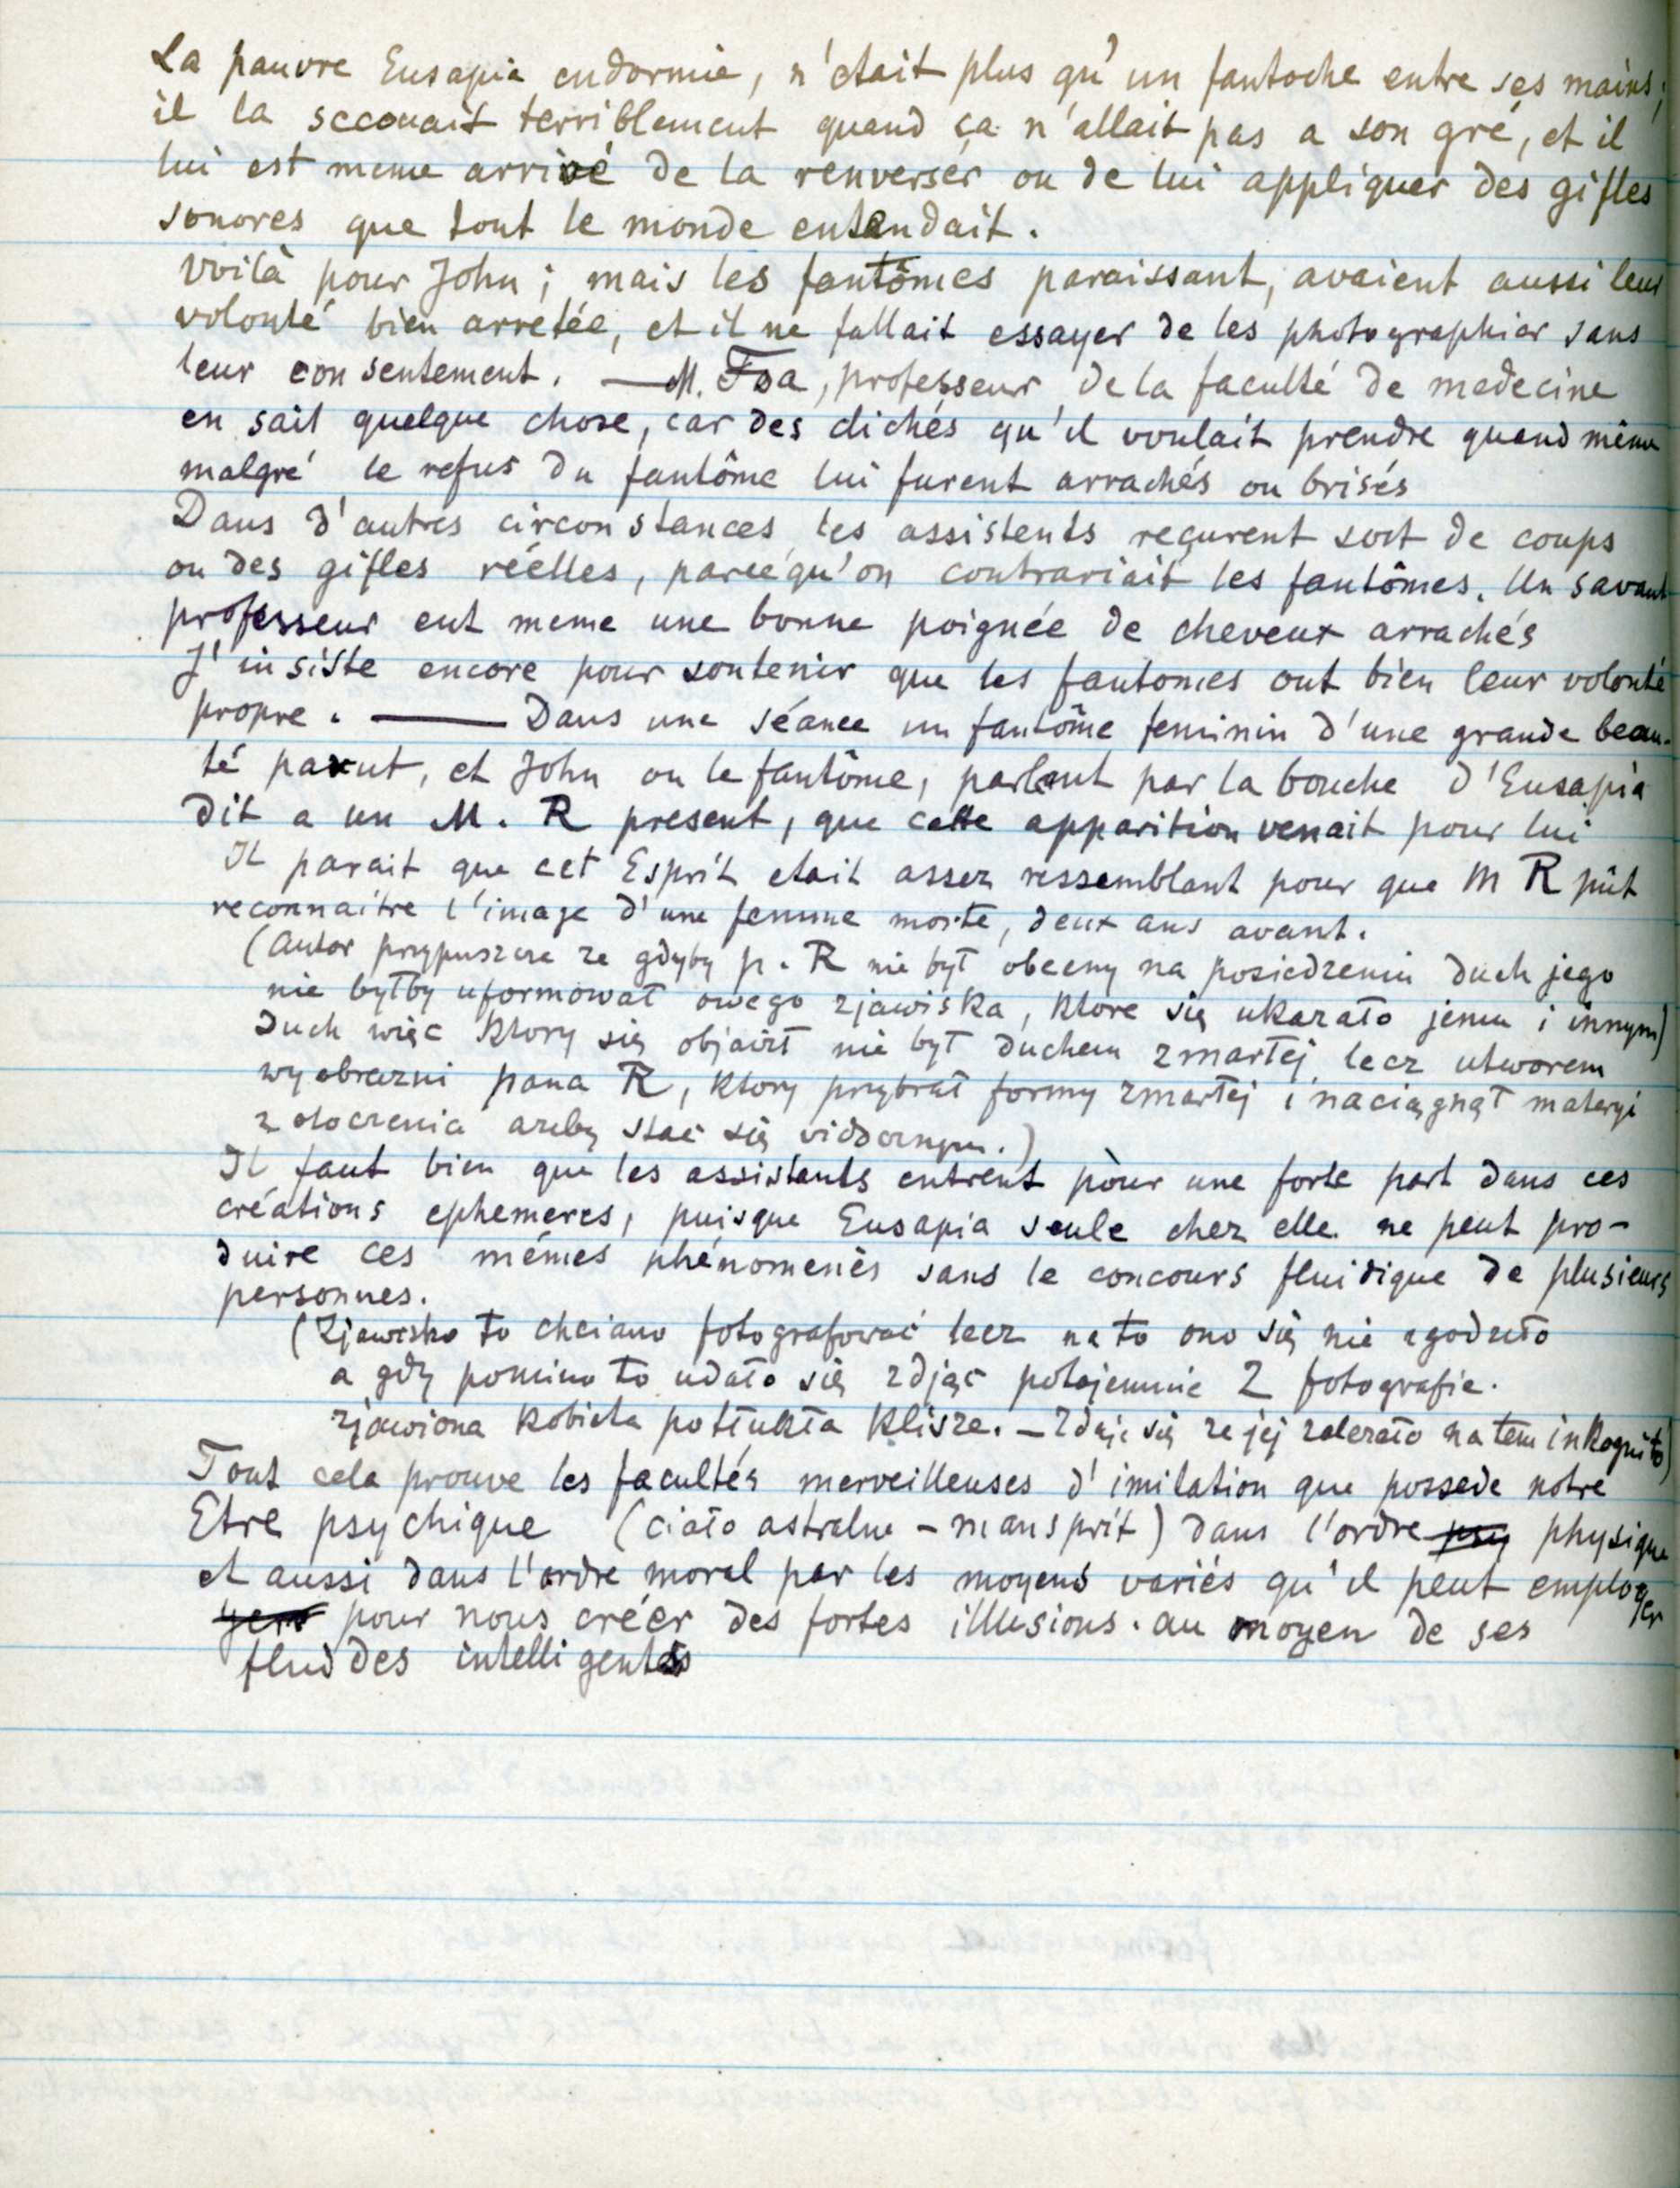 La pauvre Eusapia endormie, n'etait plus qu'un fantoche entre ses mains;
il la secouait terriblement quand ça n'allait pas a son gré, et il
lui est meme arrivé de la renverser ou de lui appliquer des gifles
sonores que tout le monde entendait.
Voilà pour John; mais les fantômes paraissant, avaient aussi leur
volonté bien arretée, et il ne fallait essayer de les photographier sans
leur consentement. — M. Foa, professeur de la faculté de medecine
en sait quelque chose, car des clichés qu'il voulait prendre quand même
malgré le refus du fantôme lui furent arrachés ou brisés
Dans d'autres circonstances les assistents reçurent soit de coups
ou des gifles réelles, parcequ'on contrariait les fantômes. Un savant
professeur eut meme une bonne poignée de cheveux arrachés
J'insiste encore pour soutenir que les fantomes ont bien leur volonté
propre. — Dans une séance un fantôme feminin d'une grande beau-
té parut, et John ou le fantôme, parlant par la bouche d'Eusapia
dit a un M. R present, que cette apparition venait pour lui
Il parait que cet Esprit etait assez ressemblant pour que M R pût
reconnaitre l'image d'une femme morte, deux ans avant.
(Autor przypuszcza ze gdyby p. R nie był obecny na posiedzeniu duch jego
nie byłby uformował owego zjawiska, ktore się ukazało jemu i innym)
Duch więc ktory się objawił nie był duchem zmarłej lecz utworem
wyobrazni pana R, ktory przybrał formy zmarłej i naciągnął materyi
z otoczenia azeby stać się vidocznym.)
Il faut bien que les assistants entrent pour une forte part dans ces
créations ephemeres, puisque Eusapia seule chez elle ne peut pro-
duire ces mémes phénomenès sans le concours fluidique de plusieurs
personnes.
(Zjawisko to chciano fotografować lecz na to ono się nie zgodziło
a gdy pomimo to udało się zdjąć potajemnie 2 fotografie.
zjawiona kobieta potłukła klisze. — Zdaje się ze jej zalezało na tem inkognito)
Tout cela prouve les facultés merveilleuses d'imitation que possede notre
Etre psychique (ciało astralne - mansprit) dans l'ordre psy physique
et aussi dans l'ordre moral par les moyens variés qu'il peut employer
yers pour nous créer des fortes illusions. au moyen de ses
fluides intelligents